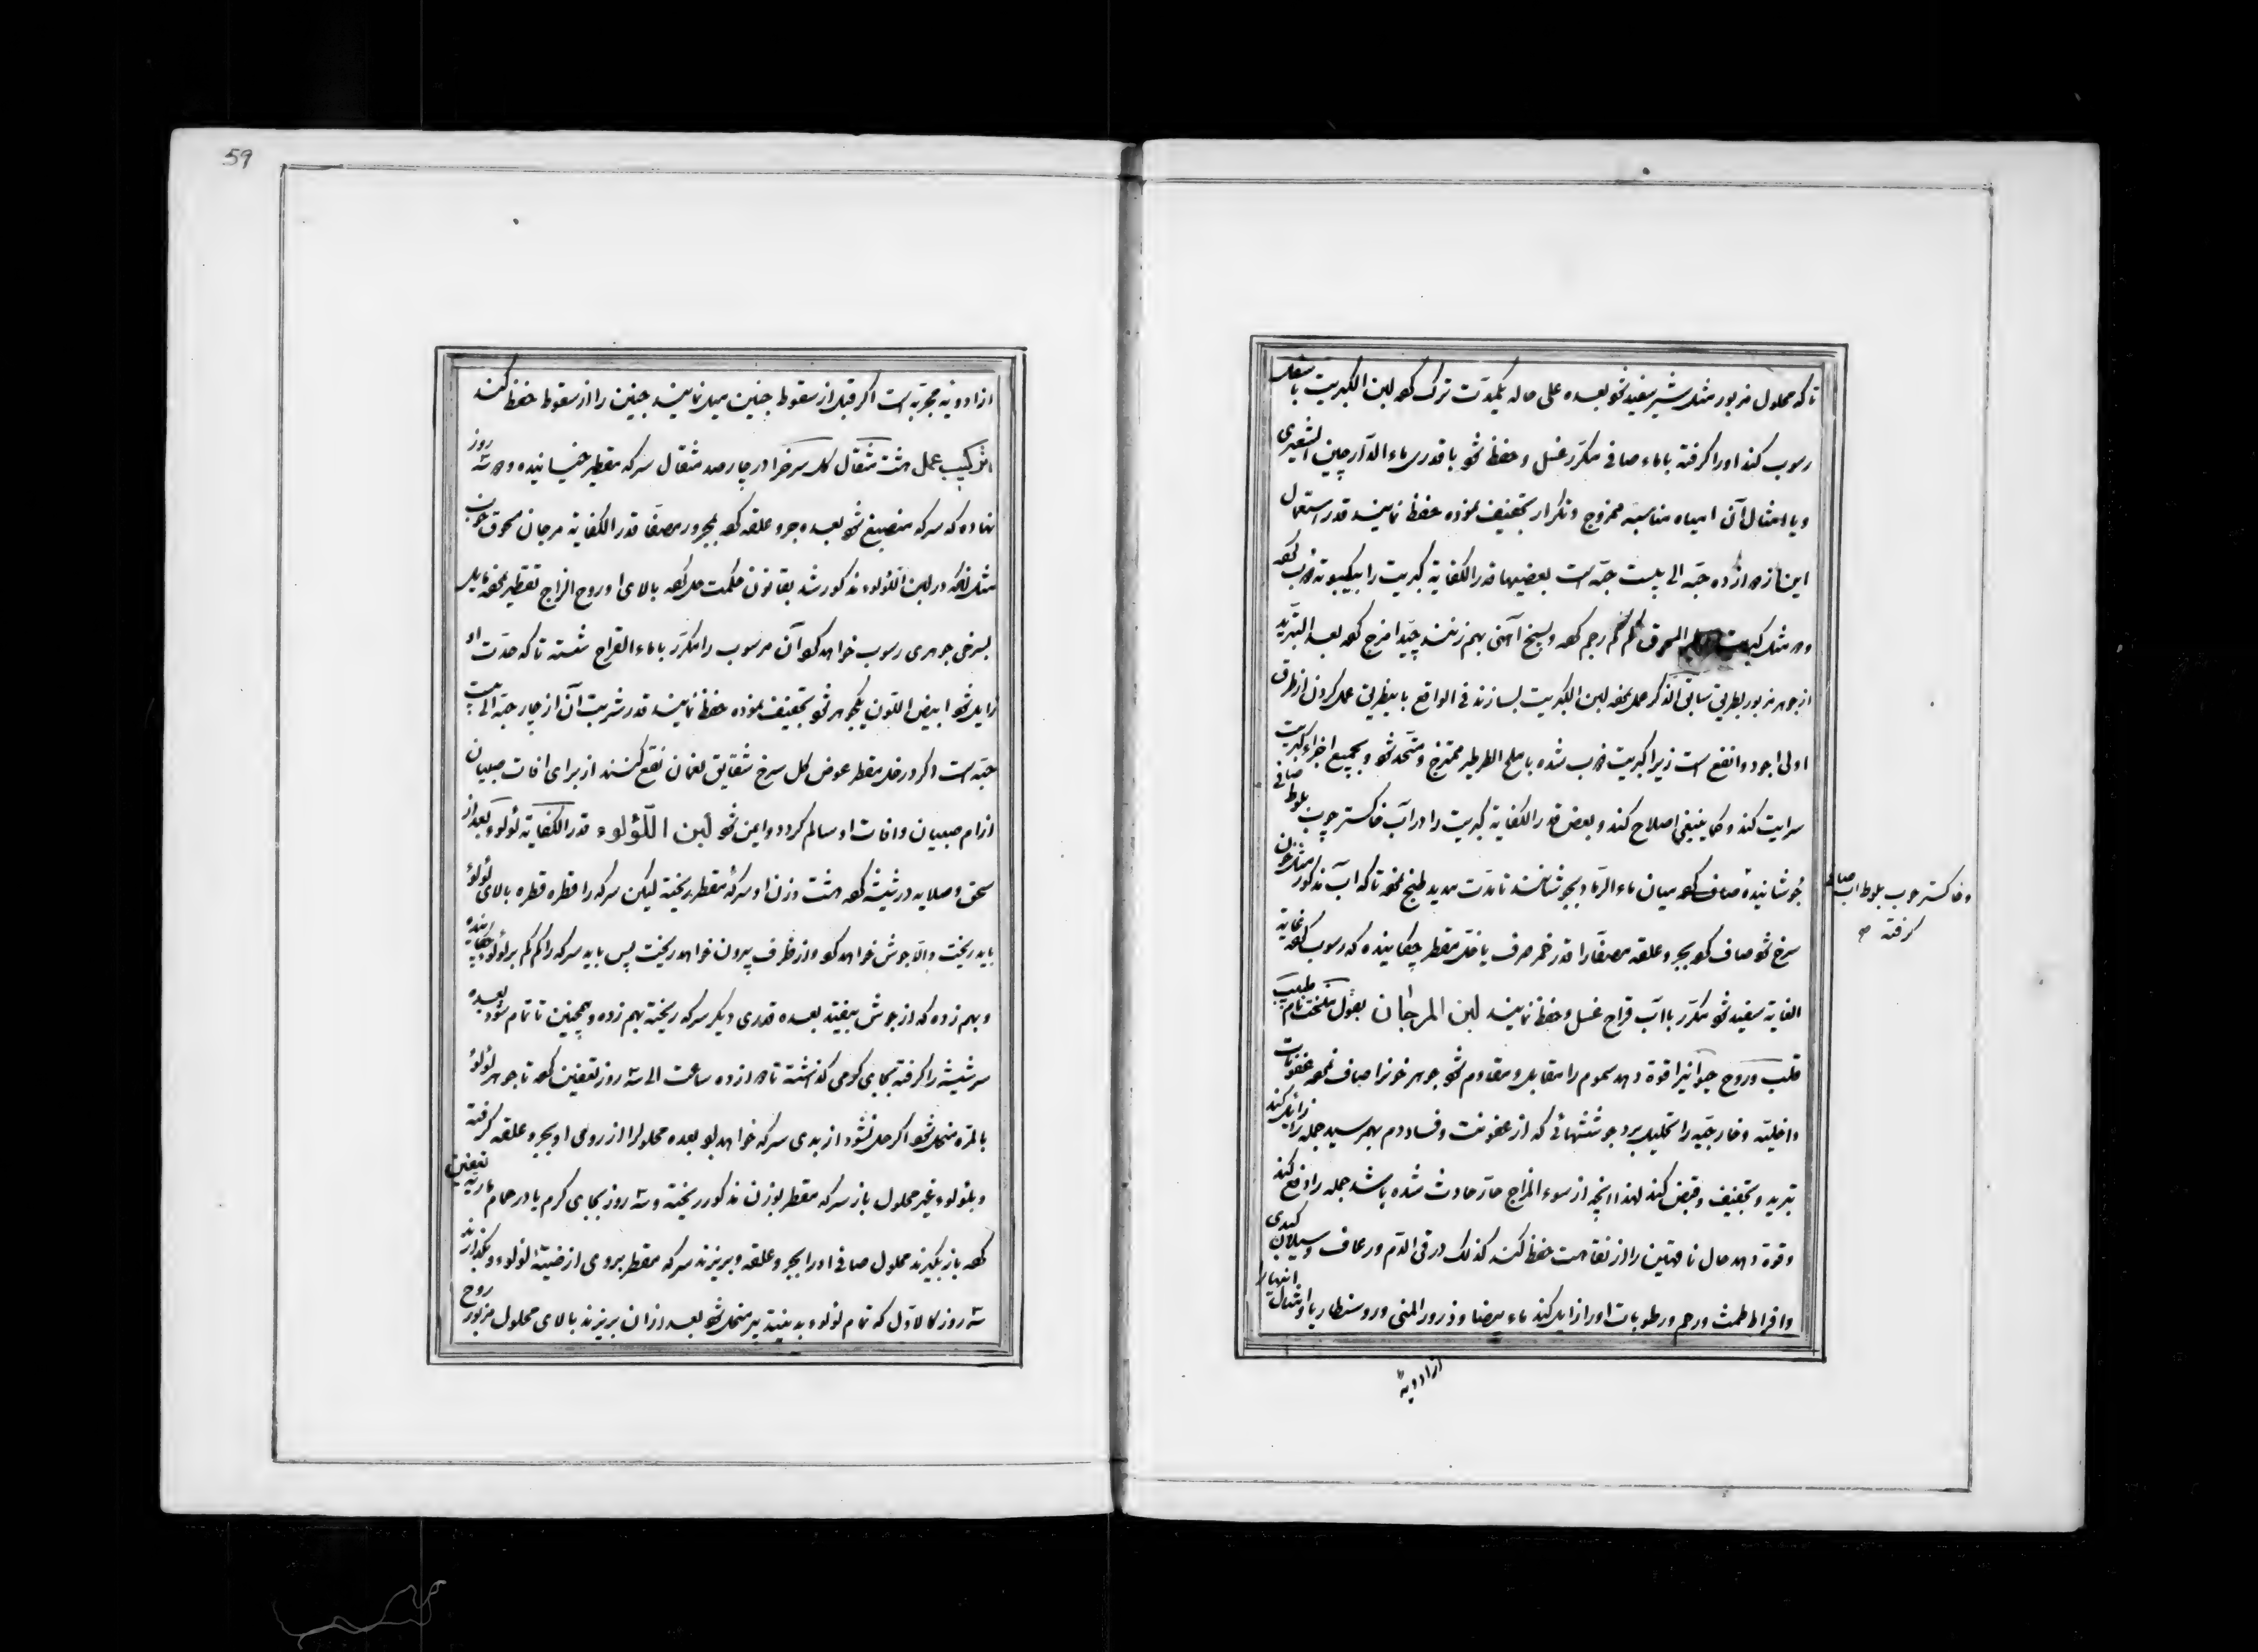 تا که محلول مزبور مثل شیر سفید شود بعده علی حاله یکمدت ترک کرده لبن الکبریت باسفل
رسوب کند اورا کرفته باماء صافی مکرّر غسل و حفظ شود با قدری ماء الدارچین الشعیری
ویا امثال آن امیاه مناسبه ممزوج و تکرار تجفیف نموده حفظ نمایند قدر استعمال
این از ده حبّه الی بیست حبّه است بعضیها قدر الکفایة کبریت را
کم کم رجم کرده وبسیخ آهنی بهم زنند جیّد امزج کرده بعد التبرید
از جوهر مزبور بطریق سابق الذکر عمل نموده لبن الکبریت بسازند فی الواقع باینطریق عمل کردن از طرق
اولی اجود وانفع است زیرا کبریت ذوب شده با ملح الطرطیر ممتزج و متّحد شود و بجمیع اجزاء کبریت
سرایت کند و کما ینبغی اصلاح کند و بعض قدر الکفایة کبریت را در آب خاکستر چوب بلوط صافی
جوشانیده صاف کرده میان ماء الرماد بجوشانند تا مدّت مدید طبخ نموده تا که آب مذکور مثل خون
سرخ شود صاف کرده بجر و علقه مصفّارا قدر خمر صرف یا خلّ مقطر چکانیده که رسوب کرده بغایة
الغایه سفید شود مکرّر باآب قراح غسل و حفظ نمایند لبن المرجان بقول طبیب
قلب و روح حیوانیرا قوة دهد سموم را مقابل و مقاوم شود جوهر خونرا صاف نموده عفونات
داخلیّه و خارجیّه را تحلیل برد جوششهائی که از عفونت و فساد دم بهمرسید جمله را زایل کند
تبرید و تجفیف و قبض کند لهذا انچه از سوء المزاج حارّ حادث شده باشد جمله را دفع کند
وقوة دهد حال ناقهین را از نقاهت حفظ کند کذلک در قی الدّم و رعاف و سیلان کبدی
وافراط طمث و رحم و رطوبات اورا زایل کند ماء بیضا و ذرور المنی و روسنطاریا و امثال اینهارا
از ادویهٔ
وخاکستر چوب بلوط اب صافی
کرفته صح
59
از ادویه مجربه است اکر قبل از سقوط جنین میل نمایند جنین را از سقوط حفظ کند
ترکیب عمل هشت مثقال کل سرخ را در چارصد مثقال سرکه مقطر خیسانیده و سه روز
نهاده که سرکه منصبغ شود بعده جر و علقه کرده بمجرور مصفّا قدر الکفایة مرجان مسحوق خوب
مثل انکه در لبن اللؤلوء مذکور شد بقانون حکمت حل کرده بالای او روح الزاج تقطیر نموده مایل
بسرخی جوهری رسوب خواهد کرد آن مرسوب را مکرّر باماء القراح شسته تا که حدّت او
زایل شود ابیض اللون یکجوهر شود تجفیف نموده حفظ نمایند قدر شربت آن از چار حبّه الی بیست
حبّه است واکر در خل مقطر عوض کل سرخ شقایق نعمان نقع کنند از برای افات صبیان
از ام صبیان وافات او سالم کردد و ایمن شود لبن اللّؤلوء قدر الکفایة لؤلوء بعد از
سحق وصلایه در شیشه کرده هشت وزن او سرکهٔ مقطر ریخته لیکن سرکه را قطره قطره بالای لؤلؤ
باید ریخت والّا جوش خواهد کرد واز ظرف بیرون خواهد ریخت پس باید سرکه را کم کم بر لؤلوء چکانیده
وبهم زده که از جوش بیفتد بعده قدری دیکر سرکه ریخته بهم زده و همچنین تا تمام شود بعده
سر شیشه را کرفته بجای کرمی کذاشته تا دوازده ساعت الی سه روز تعفین کرده تا جوهر لؤلؤ
بالمرّه منحل شود اکر حل نشود از بدی سرکه خواهد بود بعده محلولرا از روی او بجر و علقه کرفته
وبلؤلوء غیر محلول باز سرکه مقطر بوزن مذکور ریخته و سه روز بجای کرم یا در حمام ماریه تعفین
کرده باز بکیرند محلول صافی اورا بجر و علقه و بریزند سرکه مقطر بروی لؤلوء و بکذارند
سه روز کالاوّل که تمام لؤلوء منحل شود بعد ازان بریزند بالای محلول مزبور روح